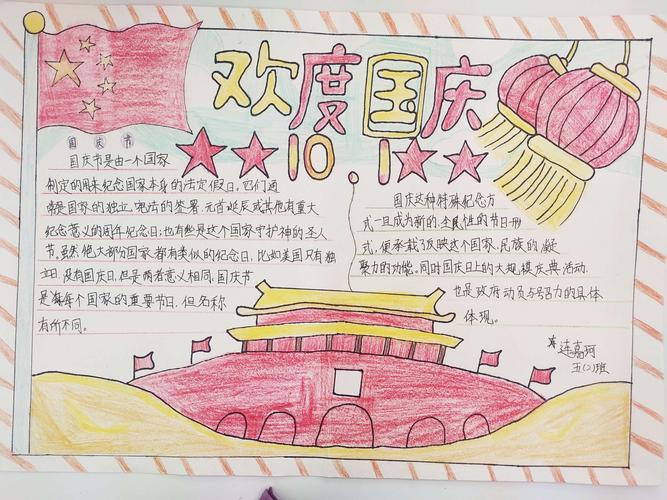 欢度国庆
10.1
国庆节
国庆节是由一个国家
制定的用来纪念国家本身的法定假日。它们通
常是国家的独立、宪法的签署、元首诞辰或其他有重大
纪念意义的周年纪念日;也有些是这个国家守护神的圣人
节。虽然绝大部分国家都有类似的纪念日,比如美国只有独
立日,没有国庆日,但是两者意义相同。国庆节
是每个国家的重要节日,但名称
有所不同。
国庆这种特殊纪念方
式一旦成为新的、全民性的节日形
式,便承载了反映这个国家、民族的凝
聚力的功能。同时国庆日上的大规模庆典活动,
也是政府动员与号召力的具体
体现。
连嘉珂
五(2)班